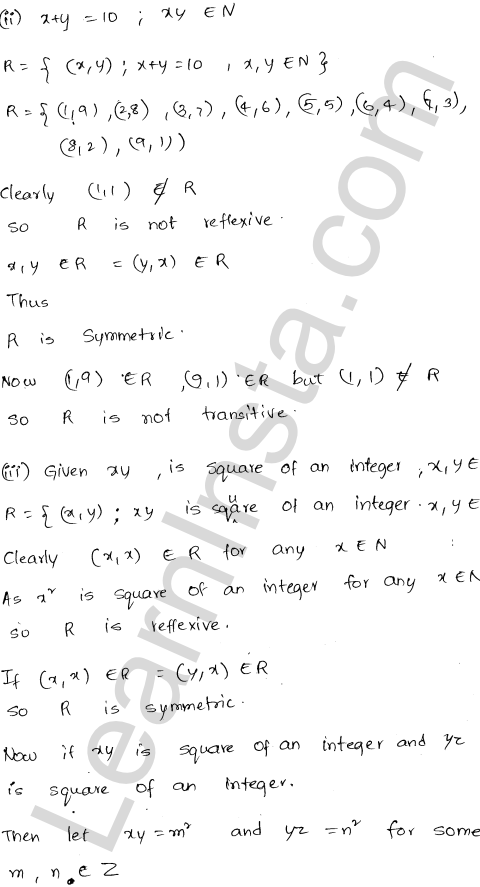 (ii) x+y = 10 ; xy ∈ N
R = { (x,y) ; x+y = 10 , x,y ∈ N }
R = { (1,9) ,(2,8) , (3,7) , (4,6) , (5,5) ,(6,4) , (7,3),
(8,2) , (9,1) )
Clearly (1,1) ∉ R
so R is not reflexive.
x,y ∈ R = (y,x) ∈ R
Thus
R is Symmetric.
Now (1,9) ∈ R ,(9,1) ∈ R but (1,1) ∉ R
so R is not transitive.
(iii) Given xy , is square of an integer , x,y ∈
R = { (x,y) ; xy is square of an integer . x,y ∈
Clearly (x,x) ∈ R for any x ∈ N
As x² is square of an integer for any x ∈ N
so R is reflexive.
If (x,x) ∈ R = (y,x) ∈ R
so R is symmetric.
Now if xy is square of an integer and yz
is square of an integer.
Then let xy = m² and yz = n² for some
m , n ∈ Z
LearnInsta.com